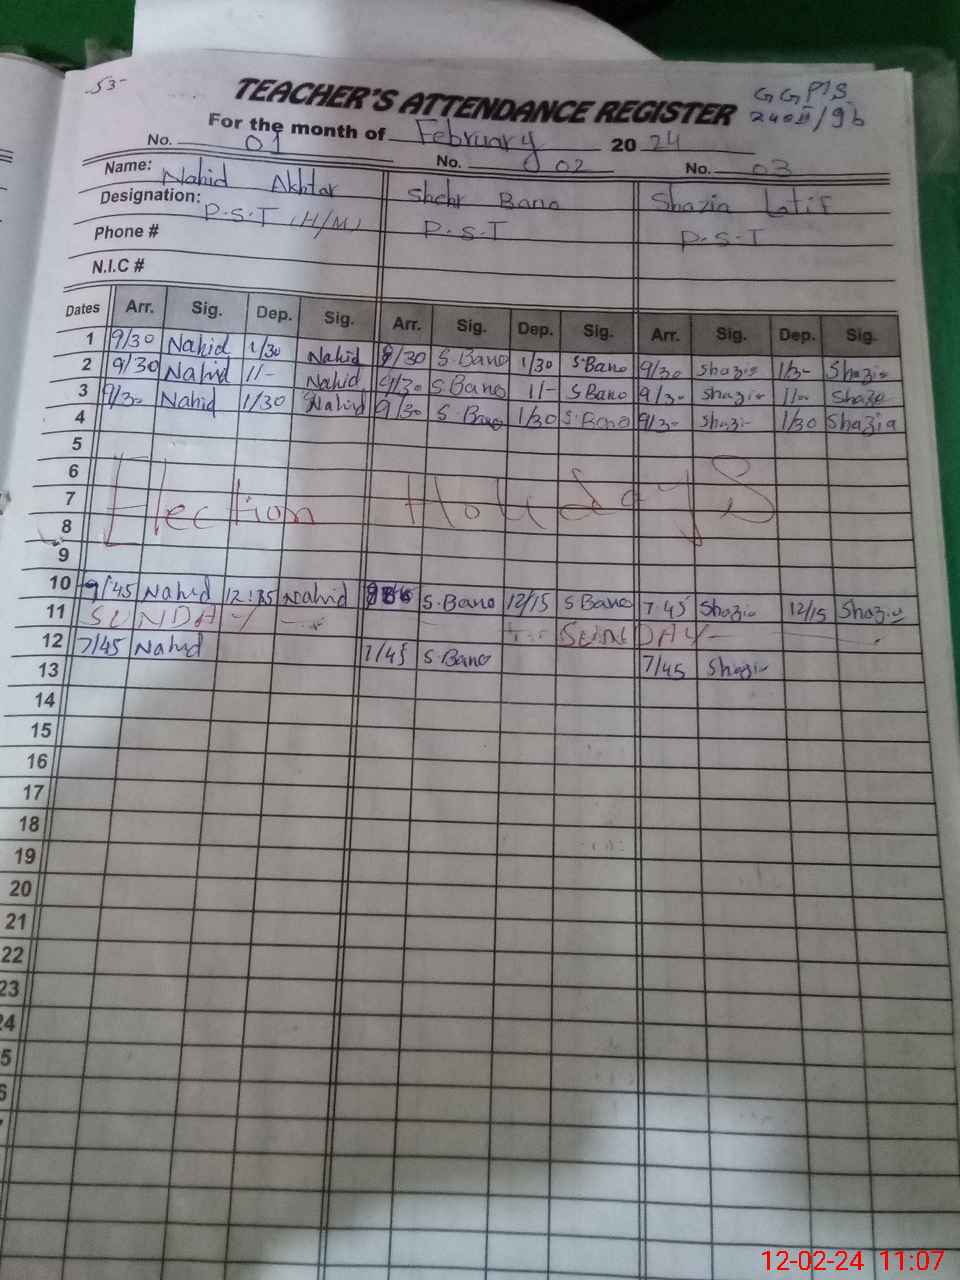 53
TEACHER'S ATTENDANCE REGISTER
GGPS
For the month of February 20 24
No. 01 No. 02 No. 03
Name: Nahid Akhtar Shehr Bano Shazia Latif
Designation: P.S.T (H/M) P.S.T P.S.T
Phone #
N.I.C #
Dates Arr. Sig. Dep. Sig. Arr. Sig. Dep. Sig. Arr. Sig. Dep. Sig.
1 9/30 Nahid 1/30 Nahid 9/30 S.Bano 1/30 S.Bano 9/30 Shazia 1/30 Shazia
2 9/30 Nahid 1/- Nahid 9/30 S.Bano 1/- S Bano 9/30 Shazia Shazia
3 9/30 Nahid 1/30 Nahid 9/30 S.Bano 1/30 S.Bano 9/30 Shazi 1/30 Shazia
4
5
6
7 Election Holidays
8
9
10 9/45 Nahid Nahid S.Bano 12/15 S Bano 7 45 Shazia 12/15 Shazia
11 SUNDAY SUNDAY
12 7/45 Nahid 7/45 S.Bano 7/45 Shazia
13
14
15
16
17
18
19
20
21
22
23
24
5
6
7
12-02-24 11:07